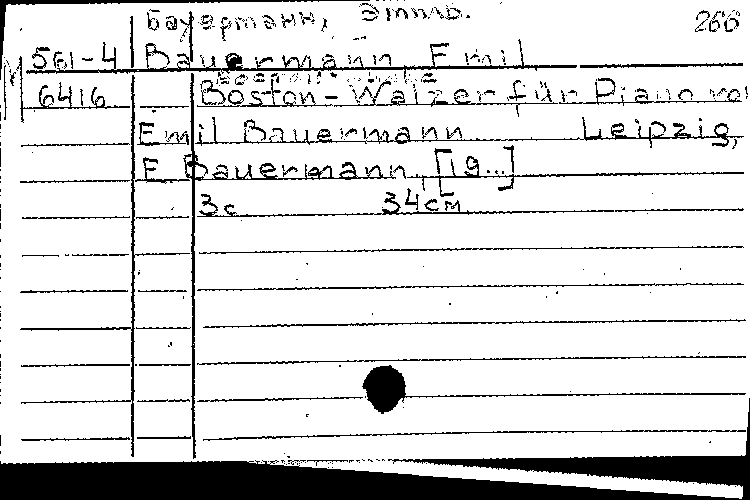 Бауерманн, Эмиль. 266
М 561-4 Bauermann, Emil
6416 Boston-Walzer für Piano von
Emil Bauermann. Leipzig,
E. Bauermann, [19...]
3 с 34 см.